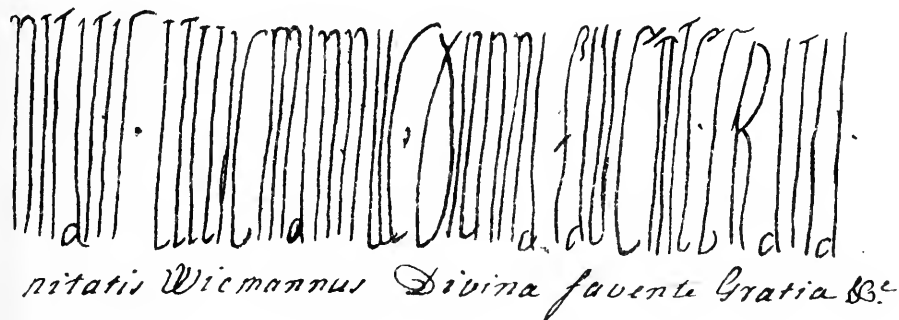 nitatis Wicmannus Divina favente Gratia
nitatis Wicmannus Divina favente Gratia &c.